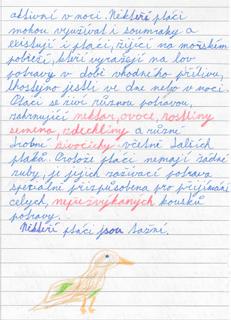 aktivní v noci. Někteří ptáci
mohou využívat i soumraky a
existují i ptáci, žijící na mořském
pobřeží, kteří vyrážejí na lov
potravy v době vhodného přílivu,
lhostejno jestli ve dne nebo v noci.
Ptáci se živí různou potravou,
zahrnující nektar, ovoce, rostliny
semena, zdechliny a různé
drobné živočichy včetně dalších
ptáků. Protože ptáci nemají žádné
zuby, je jejich zažívací potrava
speciálně přizpůsobena pro přijímání
celých, nerozžvýkaných kousků
potravy.
Někteří ptáci jsou tažní.